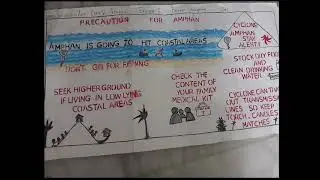 PRECAUTION FOR AMPHAN
AMPHAN IS GOING TO HIT COASTAL AREAS
DON'T GO FOR FISHING
SEEK HIGHER GROUND
IF LIVING IN LOW LYING
COASTAL AREAS
CHECK THE
CONTENT OF
YOUR FAMILY
MEDICAL KIT
CYCLONE
AMPHAN
STAY
ALERT!
STOCK DRY FOOD
AND
CLEAN DRINKING
WATER.
CYCLONE CAN
OUT TRANSMISS
LINES SO KEEP
TORCH, CANDLES
MATCHES